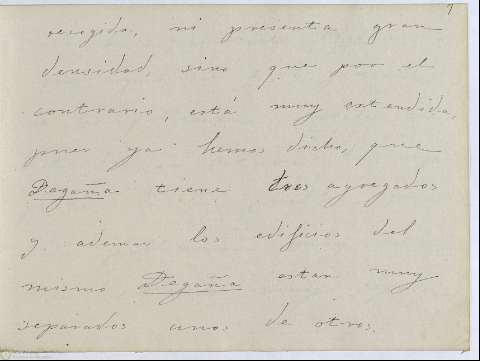 7
recogida, ni presenta gran
densidad, sino que por el
contrario, está muy extendida,
pues ya hemos dicho, que
Degaña tiene tres agregados
y ademas los edificios del
mismo Degaña estan muy
separados unos de otros.